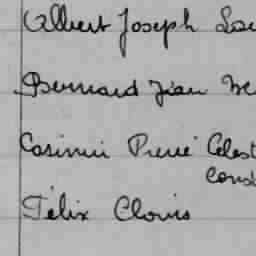 Albert Joseph
Bernard Jean
Casimir Pierre Celest
Const
Félix Clovis